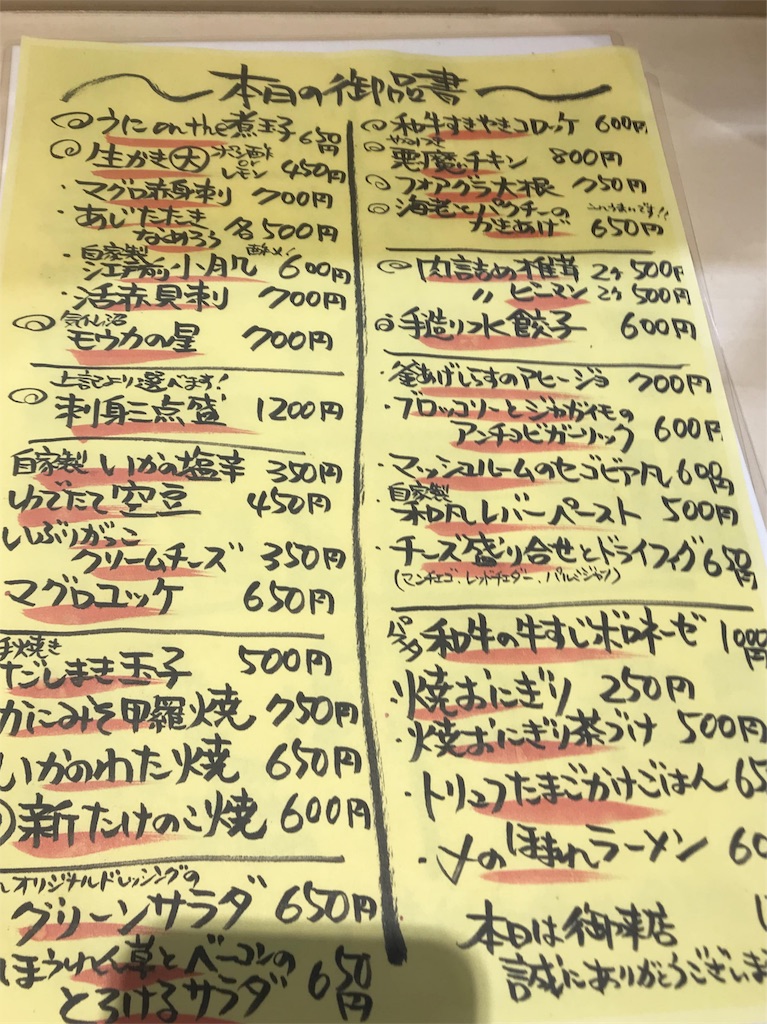 本日の御品書
うに on the 煮玉子 650円
生かき大 ポン酢 or レモン 450円
・マグロ赤身刺 700円
・あじたたき
なめろう 各500円
・自家製 江戸前小肌 酢〆! 600円
・活赤貝刺 700円
気仙沼
モウカの星 700円
上記より選べます!
刺身三点盛 1200円
自家製 いかの塩辛 350円
ゆでたて空豆 450円
いぶりがっこ
クリームチーズ 350円
マグロユッケ 650円
手焼き
だしまき玉子 500円
かにみそ甲羅焼 750円
いかのわた焼 650円
新たけのこ焼 600円
オリジナルドレッシングの
グリーンサラダ 650円
ほうれん草とベーコンの
とろけるサラダ 650円
和牛すきやきコロッケ 600円
やみつき
悪魔ッチキン 800円
フォアグラ大根 750円
海老とパクチーの
かきあげ 650円
肉詰め椎茸 2ヶ 500円
〃 ピーマン 2ヶ 500円
手造り水餃子 600円
・釜あげしらすのアヒージョ 700円
・ブロッコリーとジャガイモの
アンチョビガーリック 600円
・マッシュルームのセゴビア風 600円
・自家製
和風レバーペースト 500円
・チーズ盛り合せとドライフィグ 650円
(マンチェゴ、レッドチェダー、パルミジャン)
パスタ 和牛の牛すじボロネーゼ 1000円
・焼おにぎり 250円
・焼おにぎり茶づけ 500円
・トリュフたまごかけごはん 65
・〆のほまれラーメン 60
本日は御来店
誠にありがとうございま